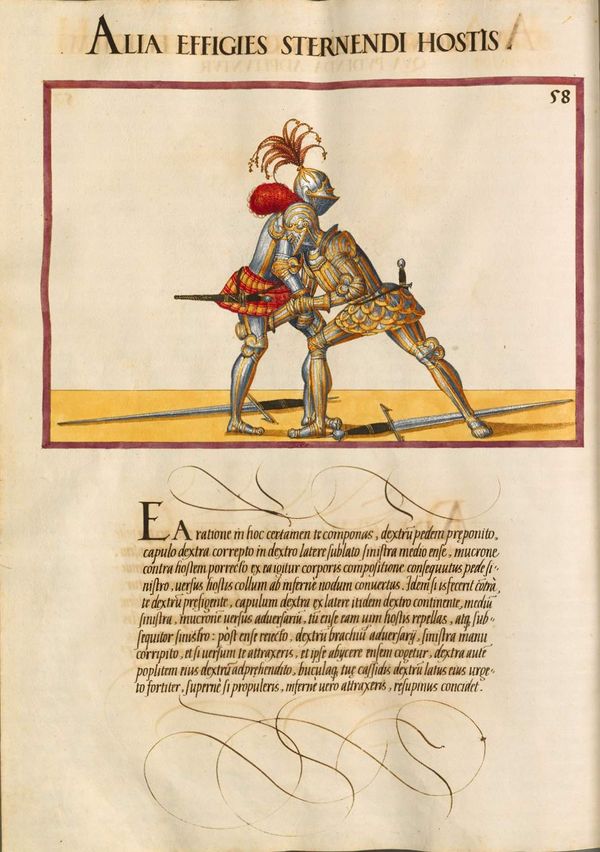 ALIA EFFIGIES STERNENDI HOSTIS.
58
EA ratione in hoc certamen te componas, dextrũ pedem pręponito,
capulo dextra correpto in dextro latere sublato sinistra medio ense, mucrone
contra hostem porrecto ex ea igitur corporis compositione consequutus pede si-
nistro, versus hostis collum ab inferne nodum conuertus. Idem si is fecerit cõtrà,
te dextrũ prefigente, capulum dextra ex latere itidem dextro continente, mediũ
sinistra, mucronẽ uersus aduersariũ, tũ ense eam uim hostis repellas, atq, sub-
sequitor sinistro: pòst ense reiecto, dextrũ brachiũ aduersarij, sinistra manu
corripito, et si uersum te attraxeris, et ipse abycere ensem cogetur, dextra aute
poplitem eius dextrũ adprehendito, buculaq, tuę cassidis dextrũ latus eius urge-
to fortiter, supernè si propuleris, infernè uero attraxeris, resupinus concidet.